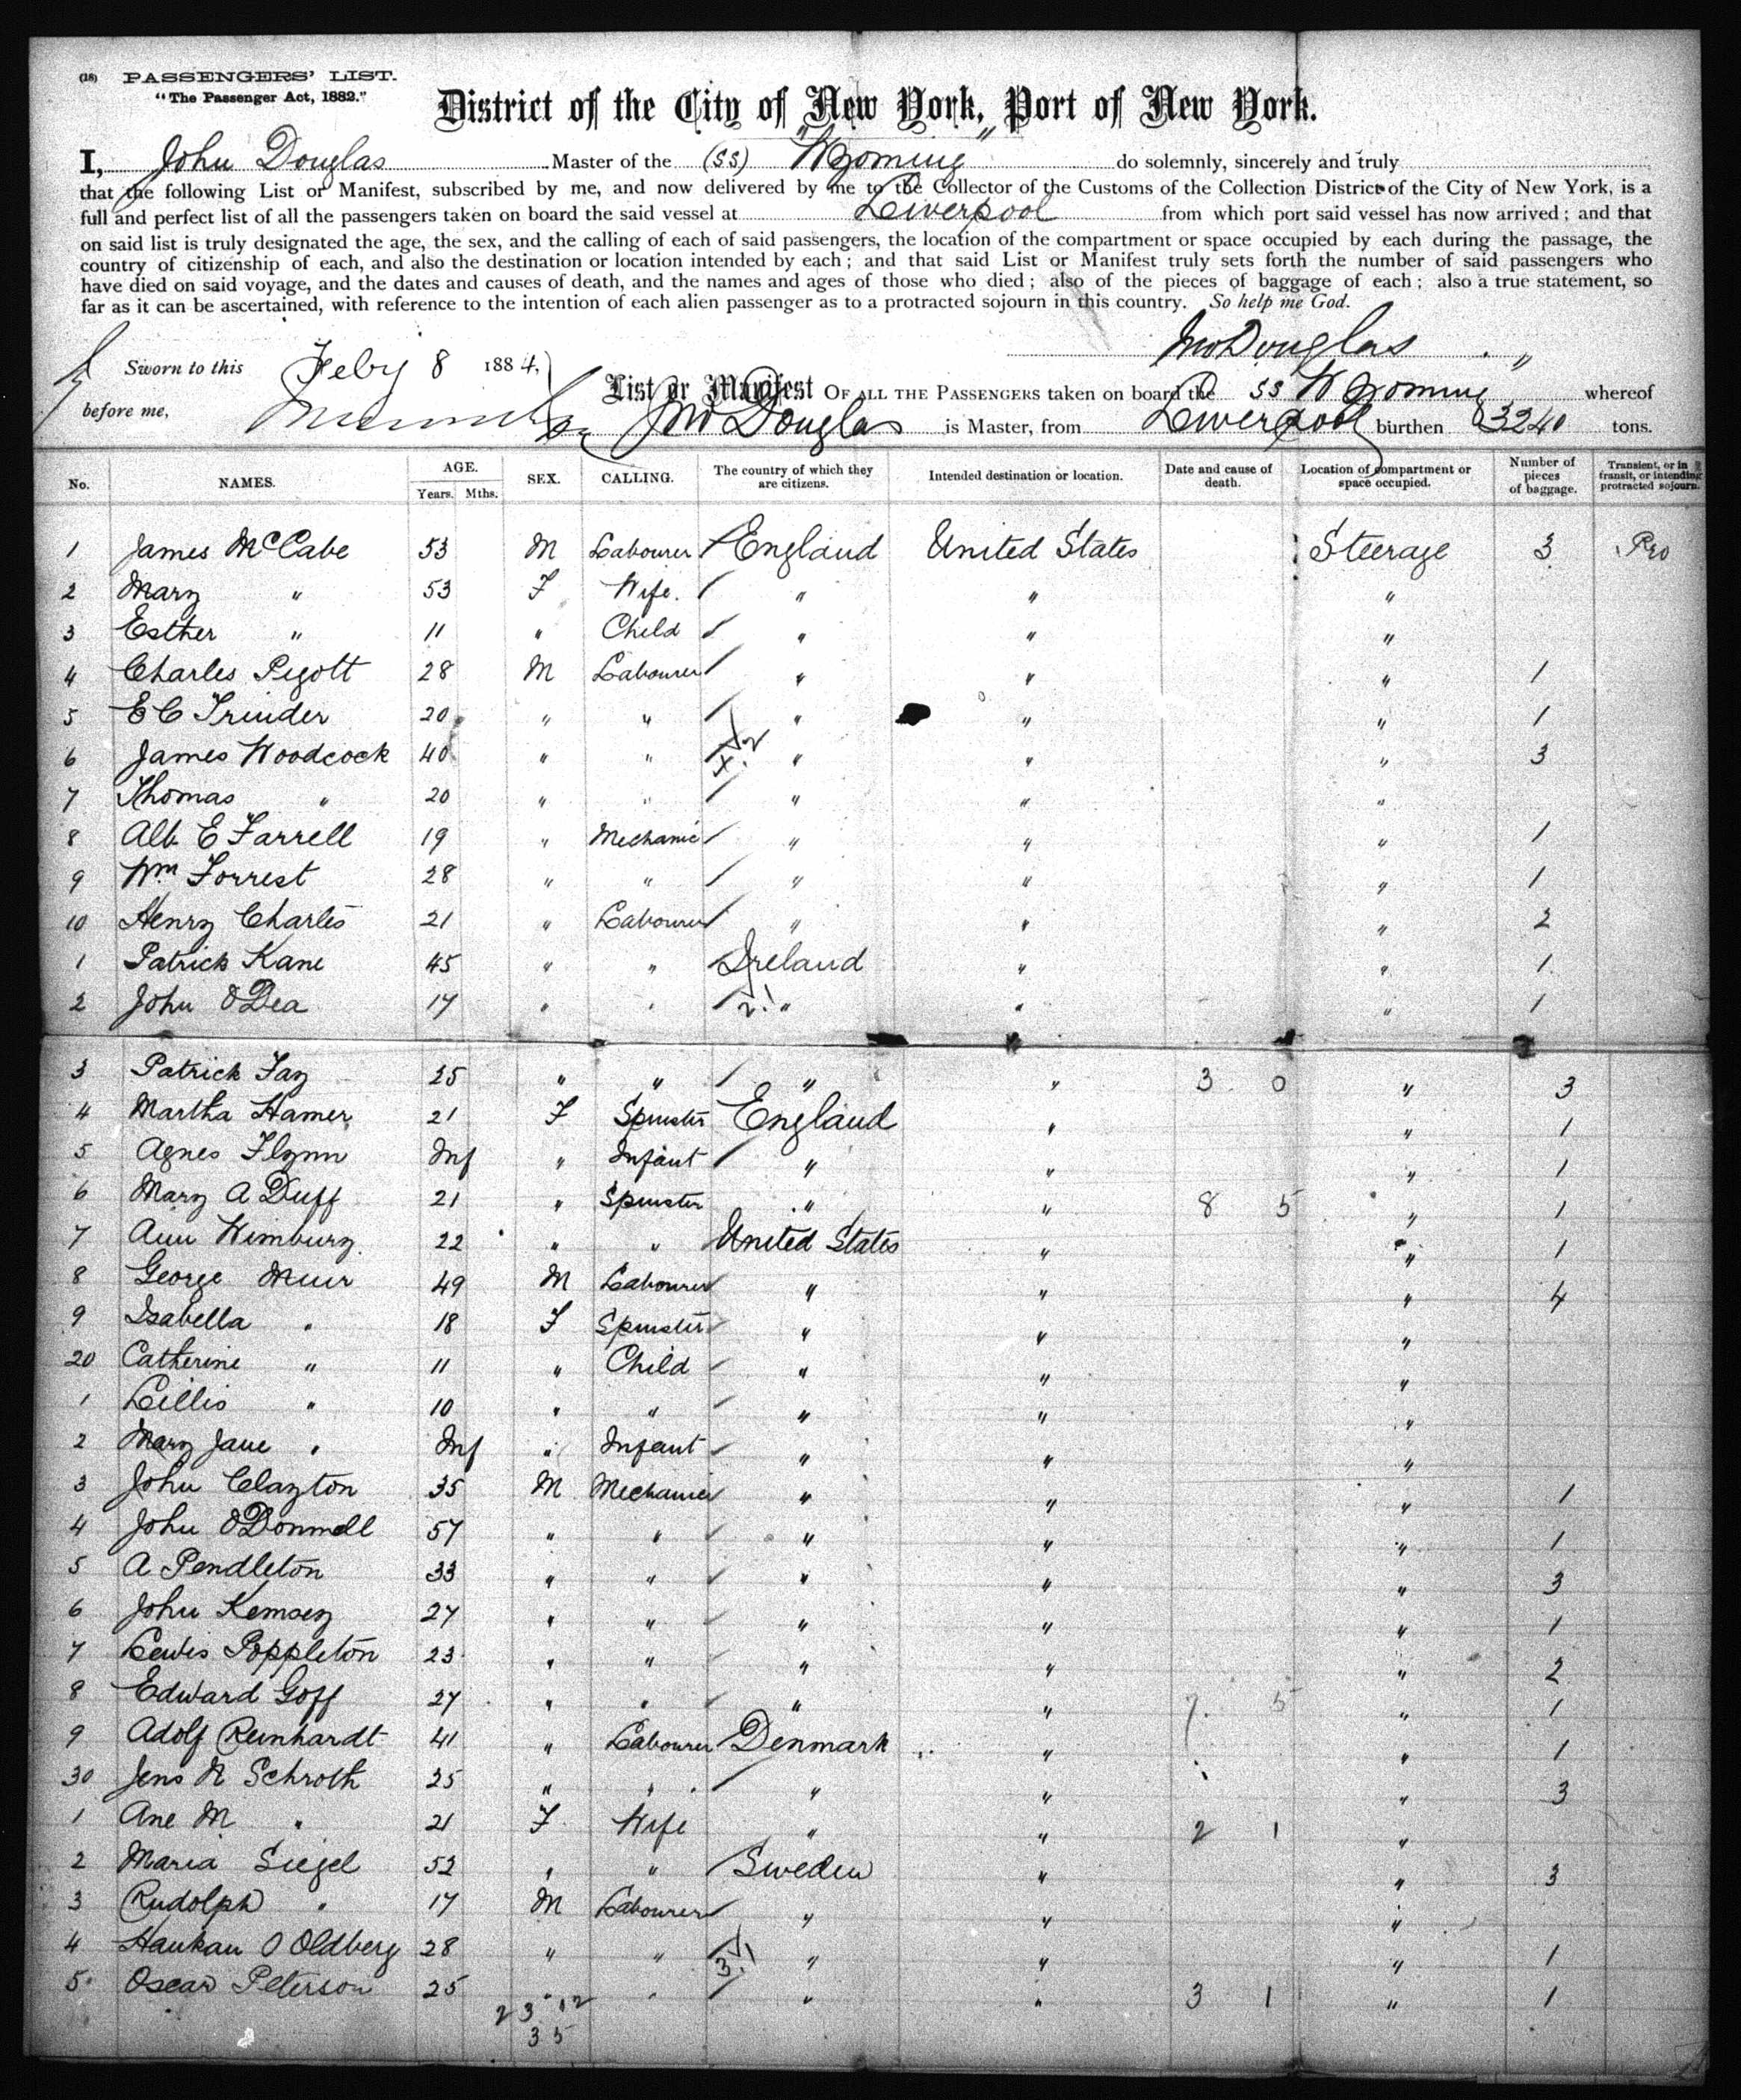 (18) PASSENGERS' LIST.
"The Passenger Act, 1882."
District of the City of New York, Port of New York.
I, John Douglas Master of the (SS) "Wyoming" do solemnly, sincerely and truly
that the following List or Manifest, subscribed by me, and now delivered by me to the Collector of the Customs of the Collection District of the City of New York, is a
full and perfect list of all the passengers taken on board the said vessel at Liverpool from which port said vessel has now arrived; and that
on said list is truly designated the age, the sex, and the calling of each of said passengers, the location of the compartment or space occupied by each during the passage, the
country of citizenship of each, and also the destination or location intended by each; and that said List or Manifest truly sets forth the number of said passengers who
have died on said voyage, and the dates and causes of death, and the names and ages of those who died; also of the pieces of baggage of each; also a true statement, so
far as it can be ascertained, with reference to the intention of each alien passenger as to a protracted sojourn in this country. So help me God.
Jno Douglas
Sworn to this Feby 8 1884,
List or Manifest OF ALL THE PASSENGERS taken on board the SS Wyoming whereof
before me, Jno Douglas is Master, from Liverpool burthen 3240 tons.
No. NAMES. AGE. Years. Mths. SEX. CALLING. The country of which they are citizens. Intended destination or location. Date and cause of death. Location of compartment or space occupied. Number of pieces of baggage. Transient, or in transit, or intending protracted sojourn.
1 James McCabe 53 M Labourer England United States Steerage 3 Pro
2 Mary " 53 F Wife. " " "
3 Esther " 11 " Child " " "
4 Charles Pigott 28 M Labourer " " " 1
5 E C Trinder 20 " " " " " 1
6 James Woodcock 40 " " " " " 3
7 Thomas " 20 " " " " "
8 Alb E Farrell 19 " Mechanic " " " 1
9 Wm Forrest 28 " " " " " 1
10 Henry Charles 21 " Labourer " " " 2
1 Patrick Kane 45 " " Ireland " " 1
2 John O'Dea 17 " " " " " 1
3 Patrick Fay 25 " " " " 3 0 " 3
4 Martha Hamer 21 F Spinster England " " 1
5 Agnes Flynn Inf " Infant " " " 1
6 Mary A Duff 21 " Spinster " " 8 5 " 1
7 Ann Wimbury 22 " " United States " " 1
8 George Muir 49 M Labourer " " " 4
9 Isabella " 18 F Spinster " " "
20 Catherine " 11 " Child " " "
1 Lillis " 10 " " " " "
2 Mary Jane " Inf " Infant " " "
3 John Clayton 35 M Mechanic " " " 1
4 John O'Donnell 57 " " " " " 1
5 A Pendleton 33 " " " " " 3
6 John Kemsey 27 " " " " " 1
7 Lewis Poppleton 23 " " " " " 2
8 Edward Goff 27 " " " " 7 5 " 1
9 Adolf Reinhardt 41 " Labourer Denmark " " 1
30 Jens N Schroth 25 " " " " " 3
1 Ane M " 21 F Wife " " 2 1 "
2 Maria Siegel 52 " " Sweden " " 3
3 Rudolph " 17 M Labourer " " "
4 Haukan O Oldberg 28 " " " " " 1
5 Oscar Peterson 25 " " " " 3 1 " 1
23 12
35